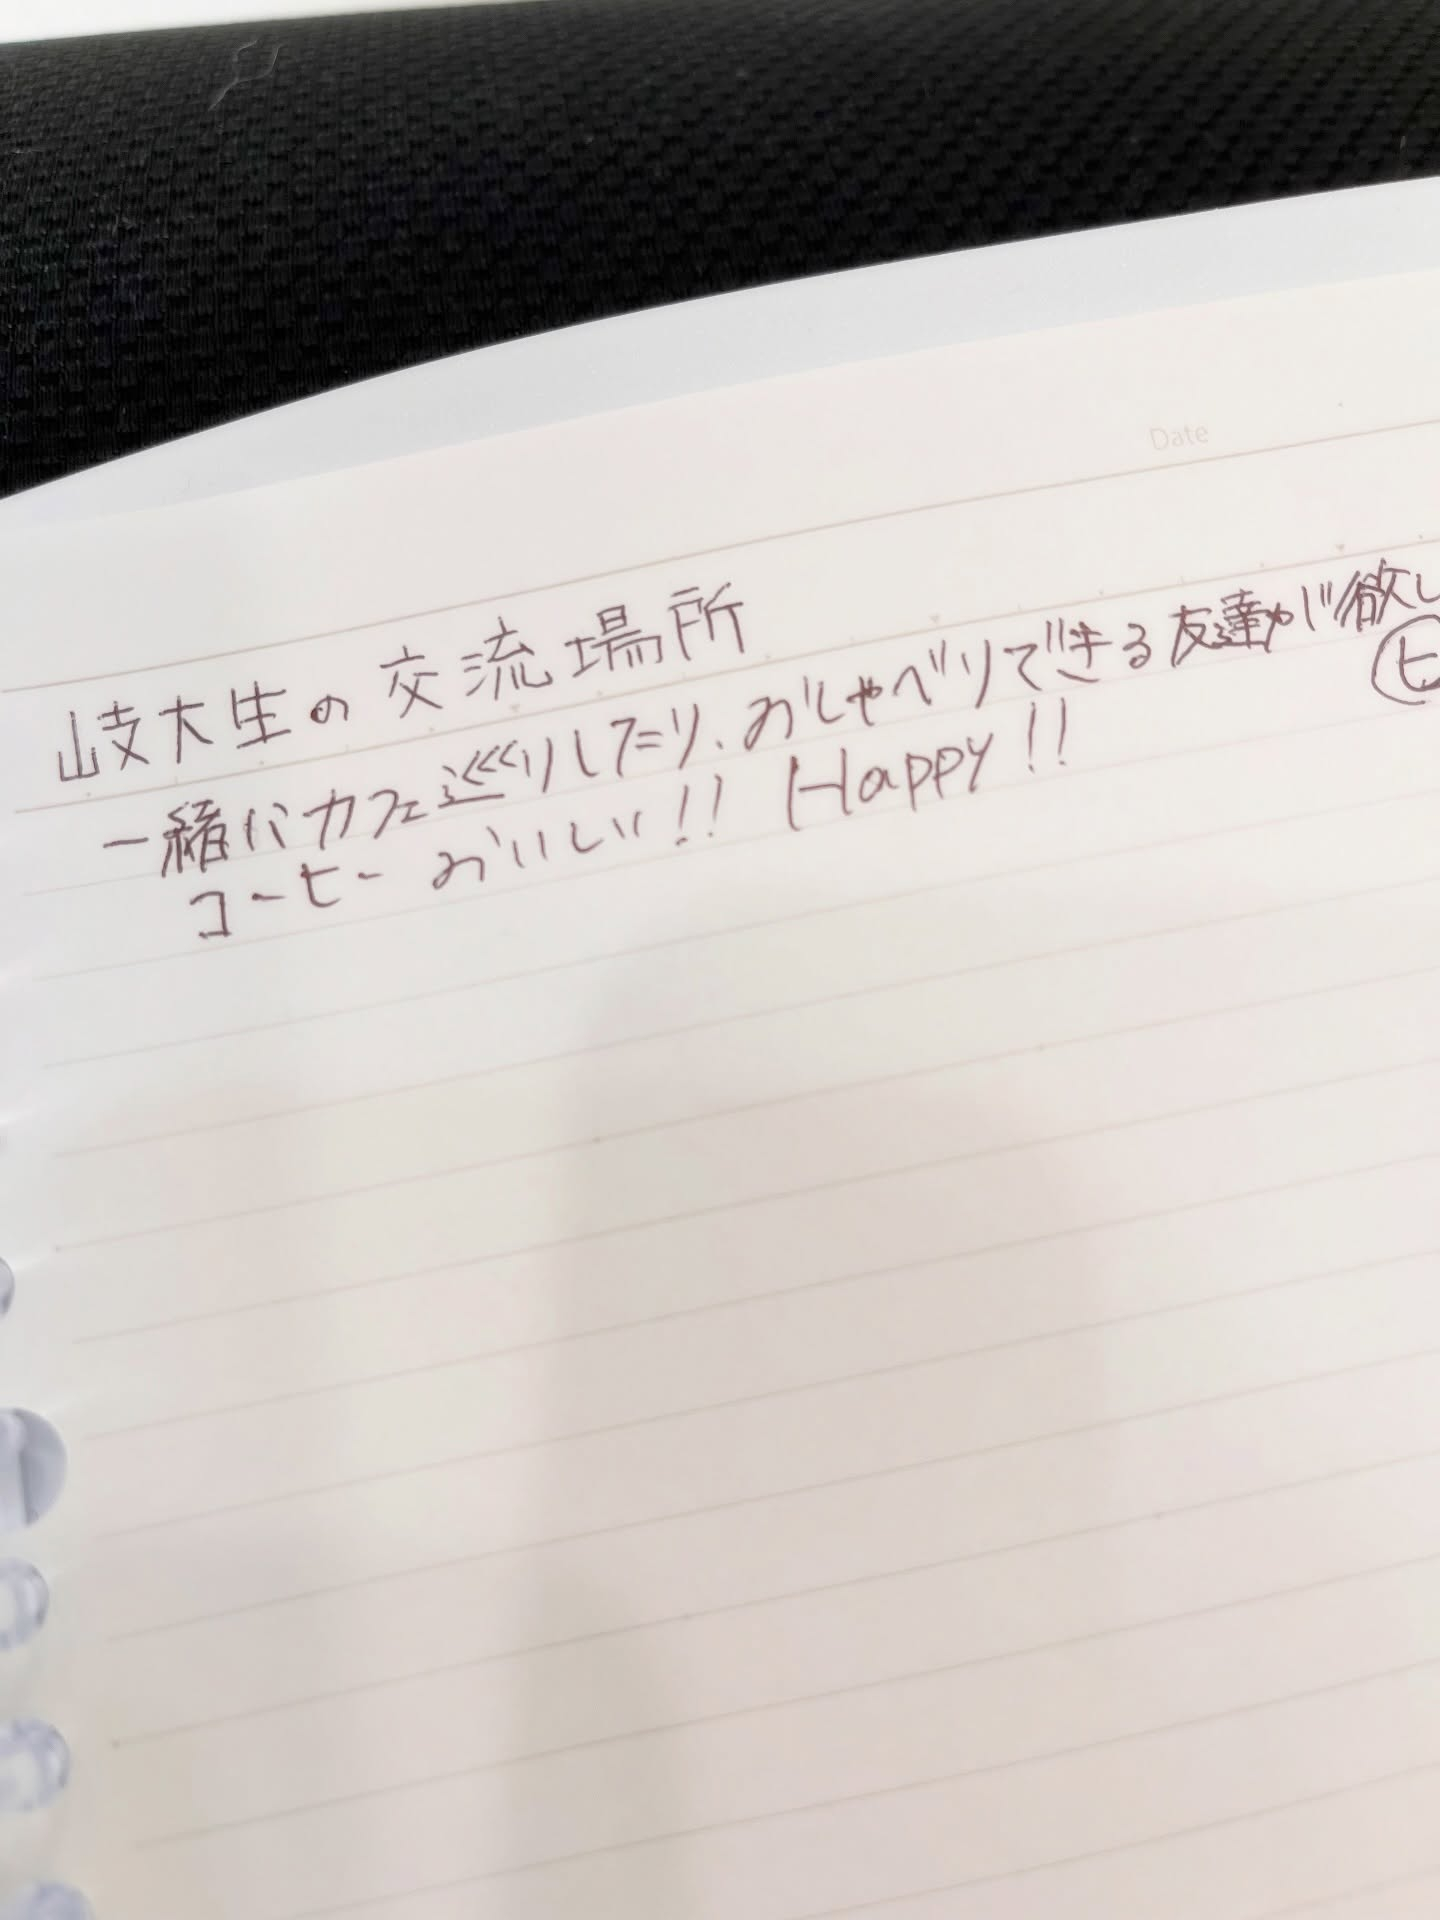 Date
岐大生の交流場所
一緒にカフェ巡りしたり、おしゃべりできる友達が欲し
ヒ
コーヒーおいしい!! Happy!!